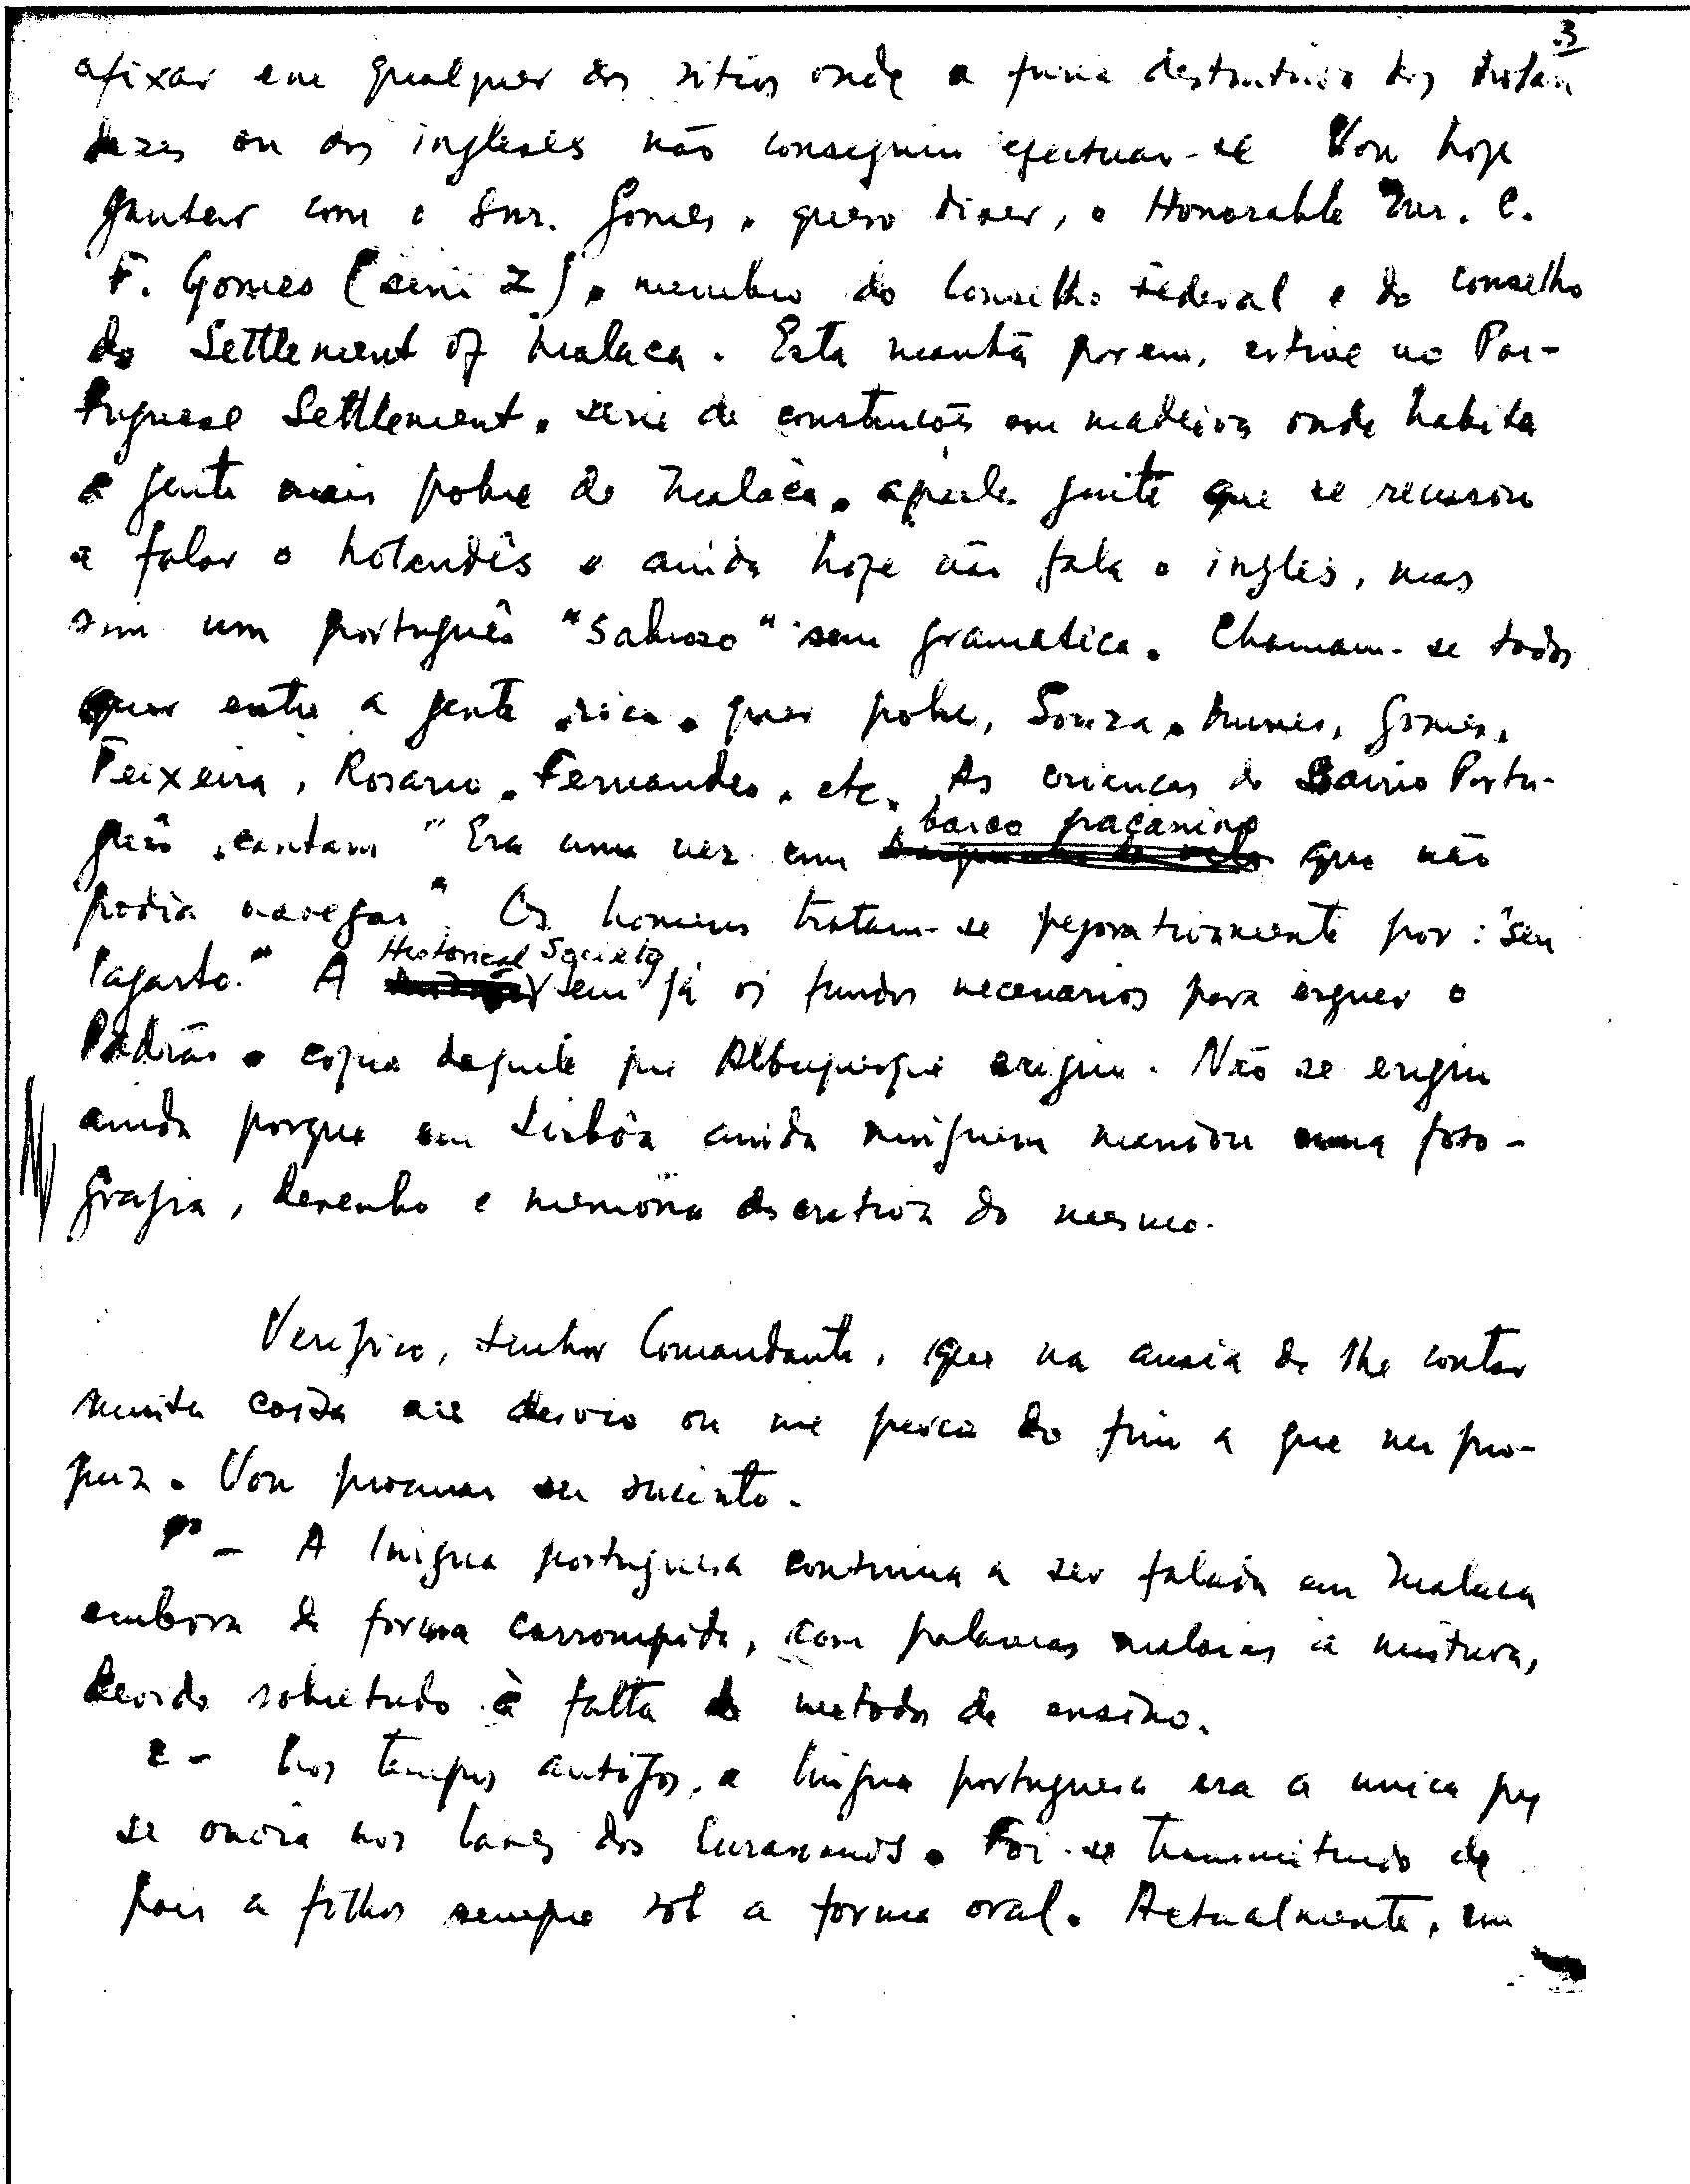 3
afixar em qualquer dos sitios onde a furia destrutiva dos holan
dezes ou dos ingleses não conseguiu efectuar-se Vou hoje
jantar com o Snr. Gomes, quero dizer, o Honorable Mr. C.
F. Gomes (sem z), membro do Conselho Federal e do conselho
do Settlement of Malaca. Esta manhã porem, estive no Por-
tuguese Settlement, serie de construções em madeira onde habita
a gente mais pobre de Malaca, aquela gente que se recusou
a falar o holandês e ainda hoje não fala o inglês, mas
sim um português "saboroso" sem gramatica. Chamam-se todos
quer entre a gente rica, quer pobre, Souza, Nunes, Gomes,
Teixeira, Rosario, Fernandes, etc. As crianças do Bairro Portu-
guês cantam "Era uma vez um barco paçanino que não
podia navegar" Os homens tratam-se pejorativamente por: "seu
lagarto." A Historical Society tem já os fundos necessarios para erguer o
Padrão, copia daquele que Albuquerque erigiu. Não se erigiu
ainda porque em Lisbôa ainda ninguem mandou uma foto-
grafia, desenho e memória descretiva do mesmo.
Verifico, Senhor Comandante, que na ansia de lhe contar
muita coisa me desvio ou me perco do fim a que me pro-
puz. Vou procurar ser sucinto.
1º - A lingua portuguesa continua a ser falada em Malaca
embora de forma corrompida, com palavras malaias à mistura,
devido sobretudo à falta de metodos de ensino.
2 - Nos tempos antigos, a lingua portuguesa era a unica que
se ouvia nos lares dos Eurasianos. Foi-se transmitindo de
pais a filhos sempre sob a forma oral. Actualmente, em